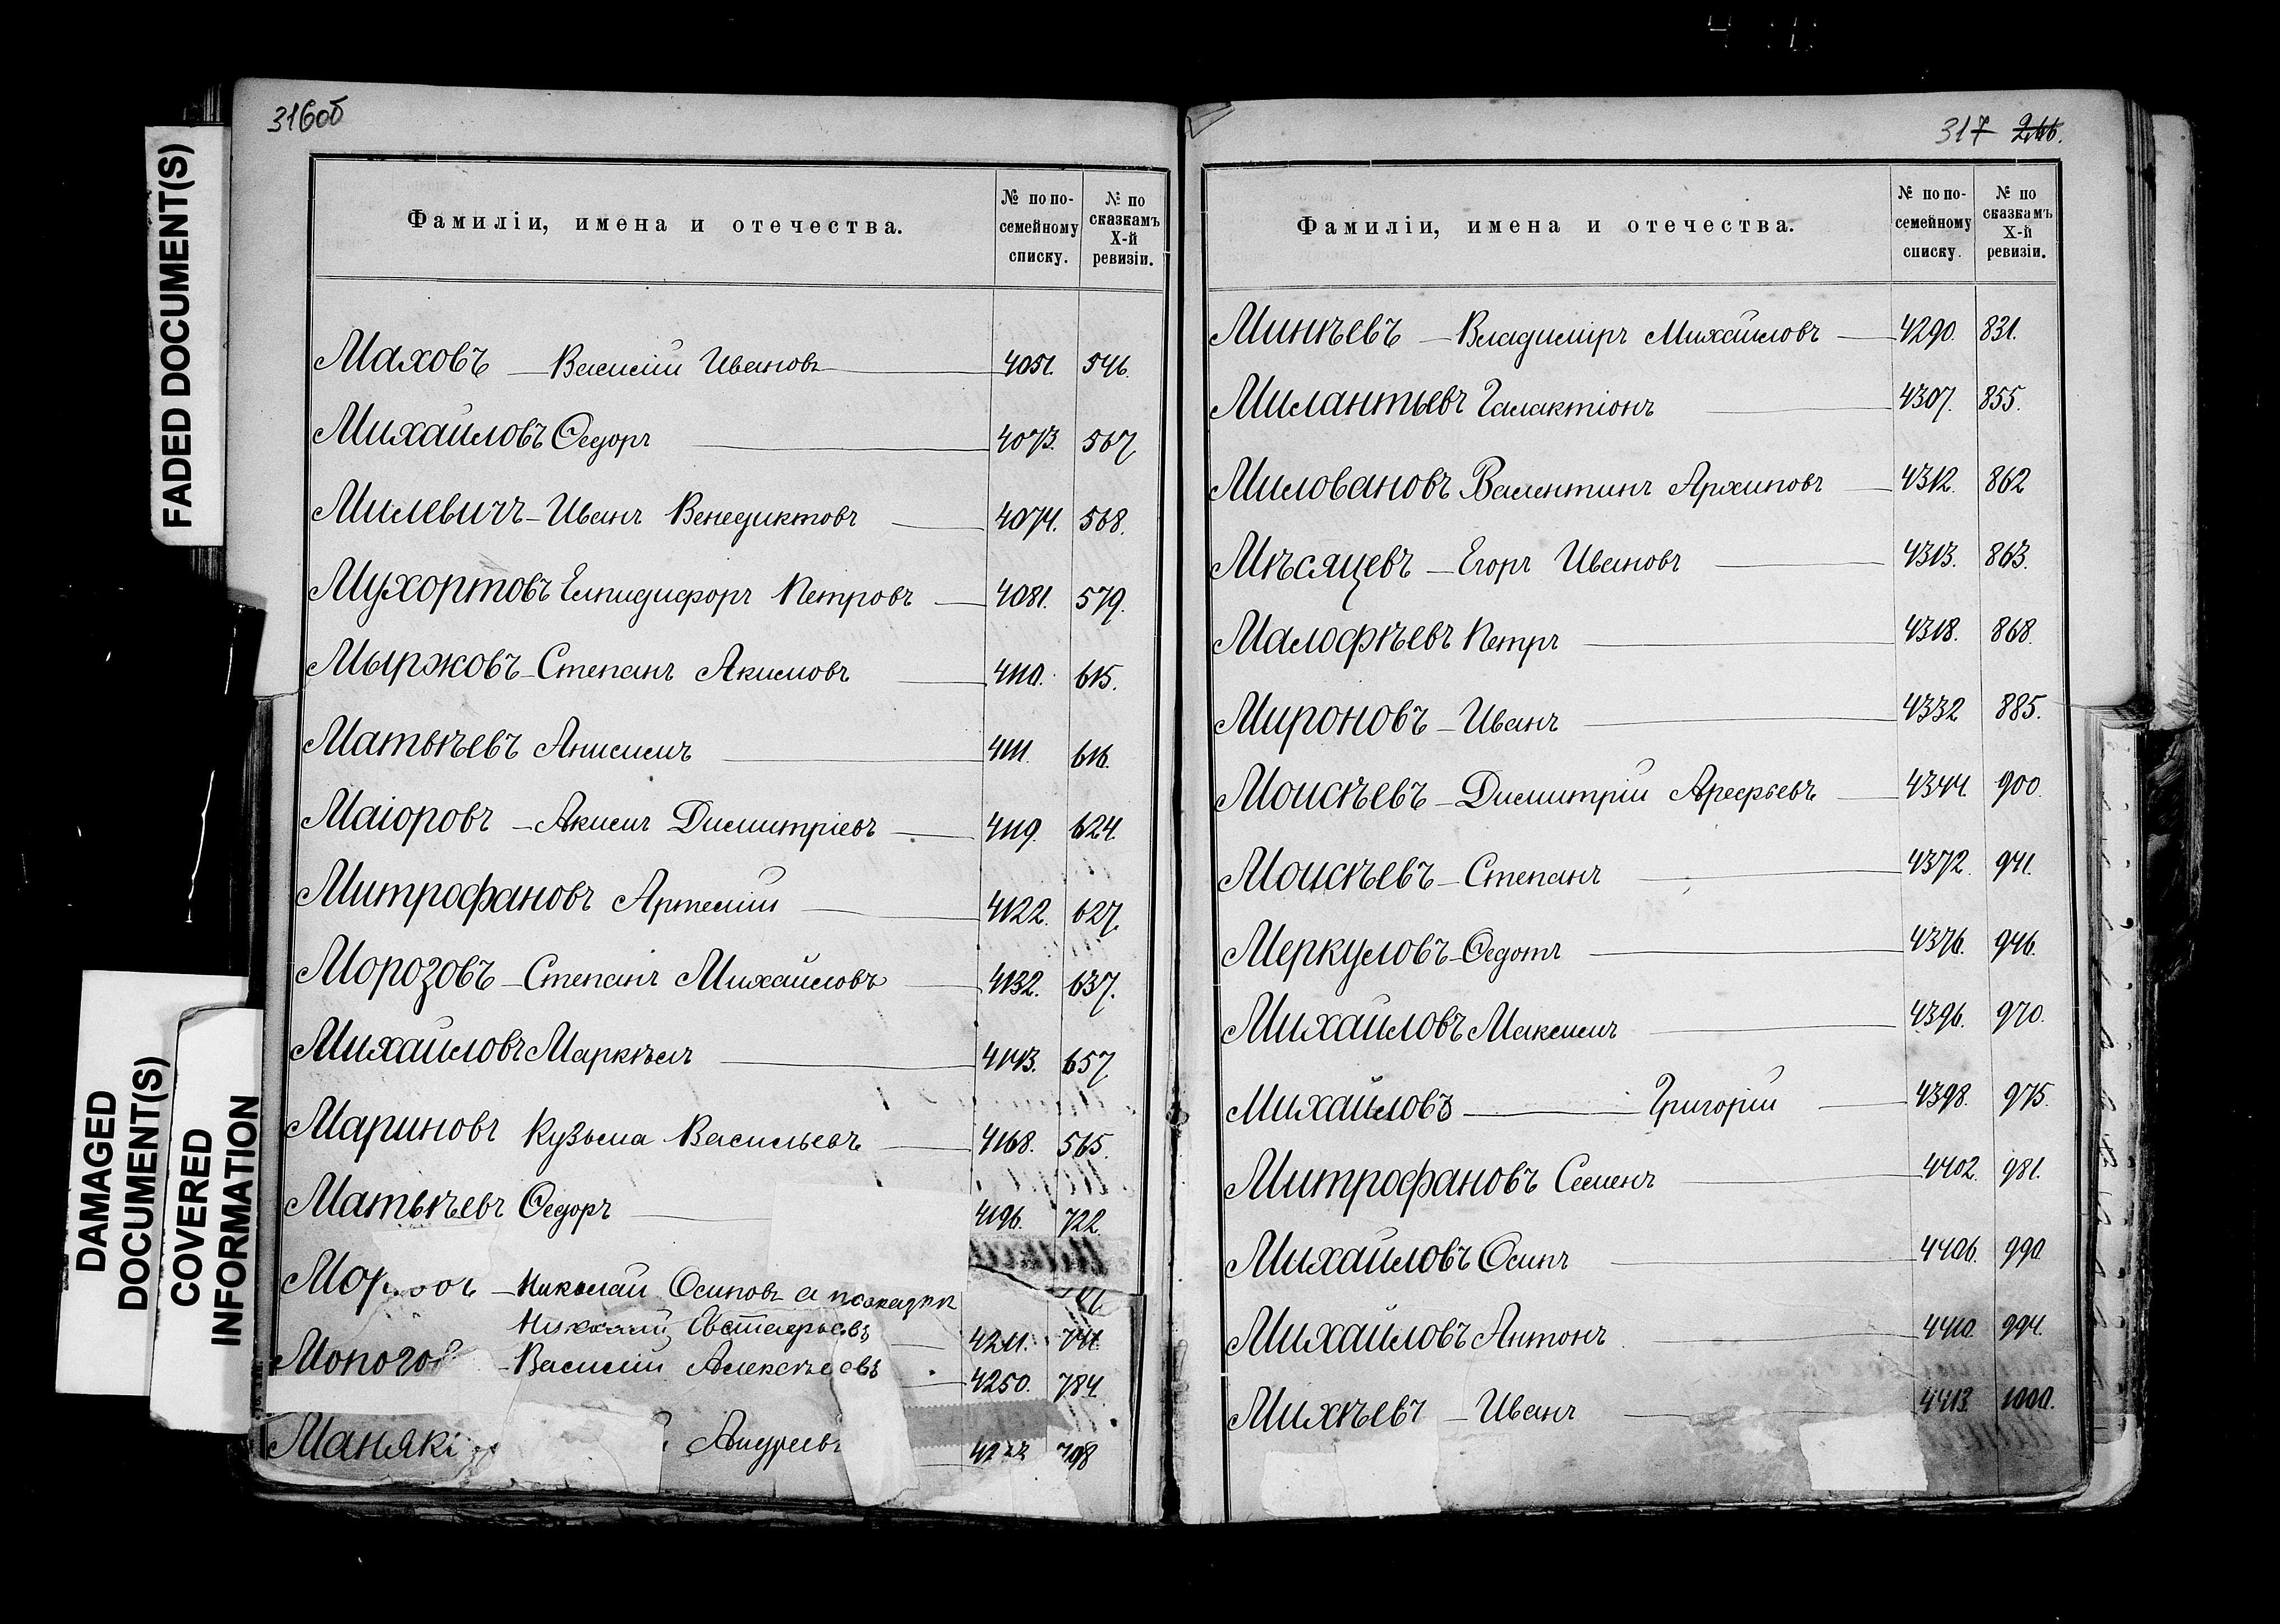 316об
Фамиліи, имена и отечества.
№ по по-
семейному
списку.
№ по
сказкамъ
X-й
ревизіи.
Маховъ — Василій Ивановъ — 4051. 546.
Михайловъ Ѳедоръ — 4073. 567
Милевичъ - Иванъ Венедиктовъ — 4074. 568.
Мухортовъ Елпидифоръ Петровъ — 4081. 579.
Мыржовъ - Степанъ Акимовъ — 4110. 615.
Матвѣевъ Анисимъ — 4111. 616.
Маіоровъ - Акимъ Дмитріевъ — 4119. 624.
Митрофановъ Артемій — 4122. 627.
Морозовъ - Степанъ Михайловъ — 4132. 637.
Михайловъ Маркѣлъ — 4143. 657
Мариновъ Кузьма Васильевъ — 4168. 565.
Матвѣевъ Ѳедоръ — 4196. 722
- Николай Осиповъ а по сказкѣ
Николай Евстаѳьевъ — 4211. 741.
- Василій Алексѣевъ — 4250. 784.
Андреевъ 798
317 266.
Фамиліи, имена и отечества.
№ по по-
семейному
списку.
№ по
сказкамъ
X-й
ревизіи.
Минѣевъ — Владиміръ Михайловъ — 4290. 831.
Милантьевъ Галактіонъ — 4307. 855.
Миловановъ Валентинъ Архиповъ — 4312. 862
Мѣсяцевъ - Егоръ Ивановъ — 4313. 863.
Малофѣевъ Петръ — 4318. 868.
Мироновъ - Иванъ — 4332 885.
Моисѣевъ - Дмитрій Арефьевъ — 4344. 900.
Моисѣевъ - Степанъ — 4372. 941.
Меркуловъ - Ѳедотъ — 4376. 946.
Михайловъ Максимъ — 4396. 970.
Михайловъ — Григорій — 4398. 975.
Митрофановъ Семенъ — 4402. 981.
Михайловъ Осипъ — 4406. 990.
Михайловъ Антонъ — 4410. 994.
Михѣевъ - Иванъ — 4413. 1000.
FADED DOCUMENT(S)
DAMAGED
DOCUMENT(S)
COVERED
INFORMATION